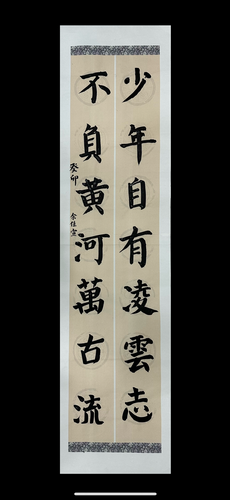 少年自有凌雲志
不負黃河萬古流
癸卯